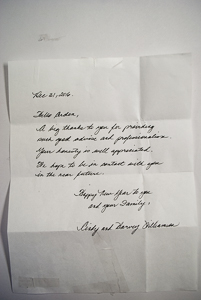 Dec 21, 2016.
Hello Arden,
A big thanks to you for providing
such good advice and professionalism.
Your honesty is well appreciated.
We hope to be in contact with you
in the near future.
Happy New Year to you
and your Family,
and Harvey Williamson